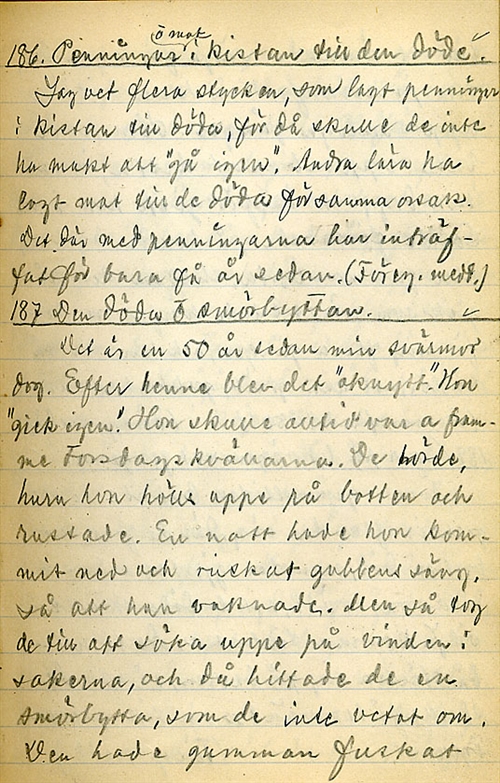 186. Penningar o mat i kistan till den döde.
Jag vet flera stycken, som lagt penningar
i kistan till döda, för då skulle de inte
ha makt att "gå igen". Andra lära ha
lagt mat till de döda för samma orsak.
Det där med penningarna har inträf-
fat för bara få år sedan. (Föreg. medd.)
187 Den döda o smörbyttan.
Det är en 50 år sedan min svärmor
dog. Efter henne blev det "oknytt". Hon
"gick igen". Hon skulle alltid vara fram-
me Torsdagskvällarna. De hörde,
huru hon hölls uppe på botten och
rustade. En natt hade hon kom-
mit ned och ruskat gubbens säng,
så att han vaknade. Men så tog
de till att söka uppe på vinden i
sakerna, och då hittade de en
smörbytta, som de inte vetat om.
Den hade gumman fuskat